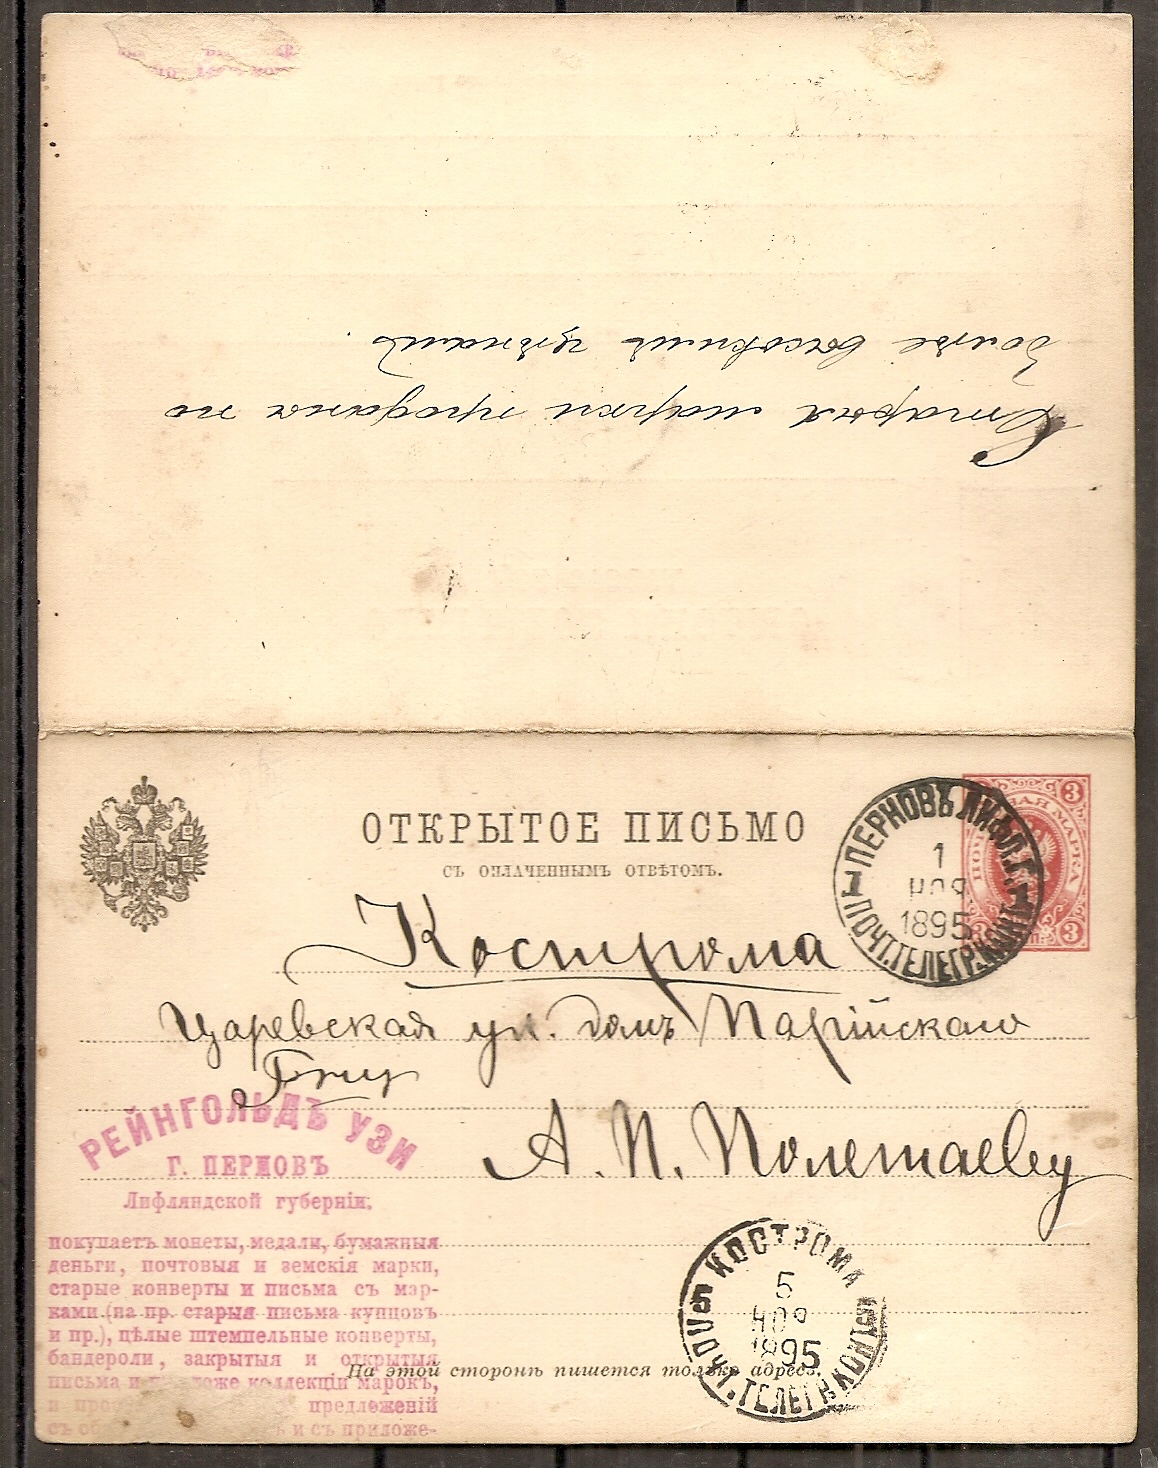 Старыя марки проданы по
болѣе высокимъ цѣнамъ.
ОТКРЫТОЕ ПИСЬМО
СЪ ОПЛАЧЕННЫМЪ ОТВѢТОМЪ.
3 3
МАРКА
3
ПЕРНОВЪ ЛИФЛ.Г.
1
НОЯ
1895
1 ПОЧТ.ТЕЛЕГР.КОНТ. 1
Кострома
Царевская ул. домъ Парійскаго
Гну
А. П. Полетаеву
РЕЙНГОЛЬДЪ УЗИ
Г. ПЕРНОВЪ
Лифляндской губерніи.
покупаетъ монеты, медали, бумажныя
деньги, почтовыя и земскія марки,
старые конверты и письма съ мар-
ками (на пр. старыя письма купцовъ
и пр.), цѣлые штемпельные конверты,
бандероли, закрытыя и открытыя
письма и коллекціи марокъ,
предложеній
и съ приложе-
На этой сторонѣ пишется только адресъ.
КОСТРОМА
5
НОЯ
1895
5 ПОЧТ.ТЕЛЕГР.КОНТ. 5